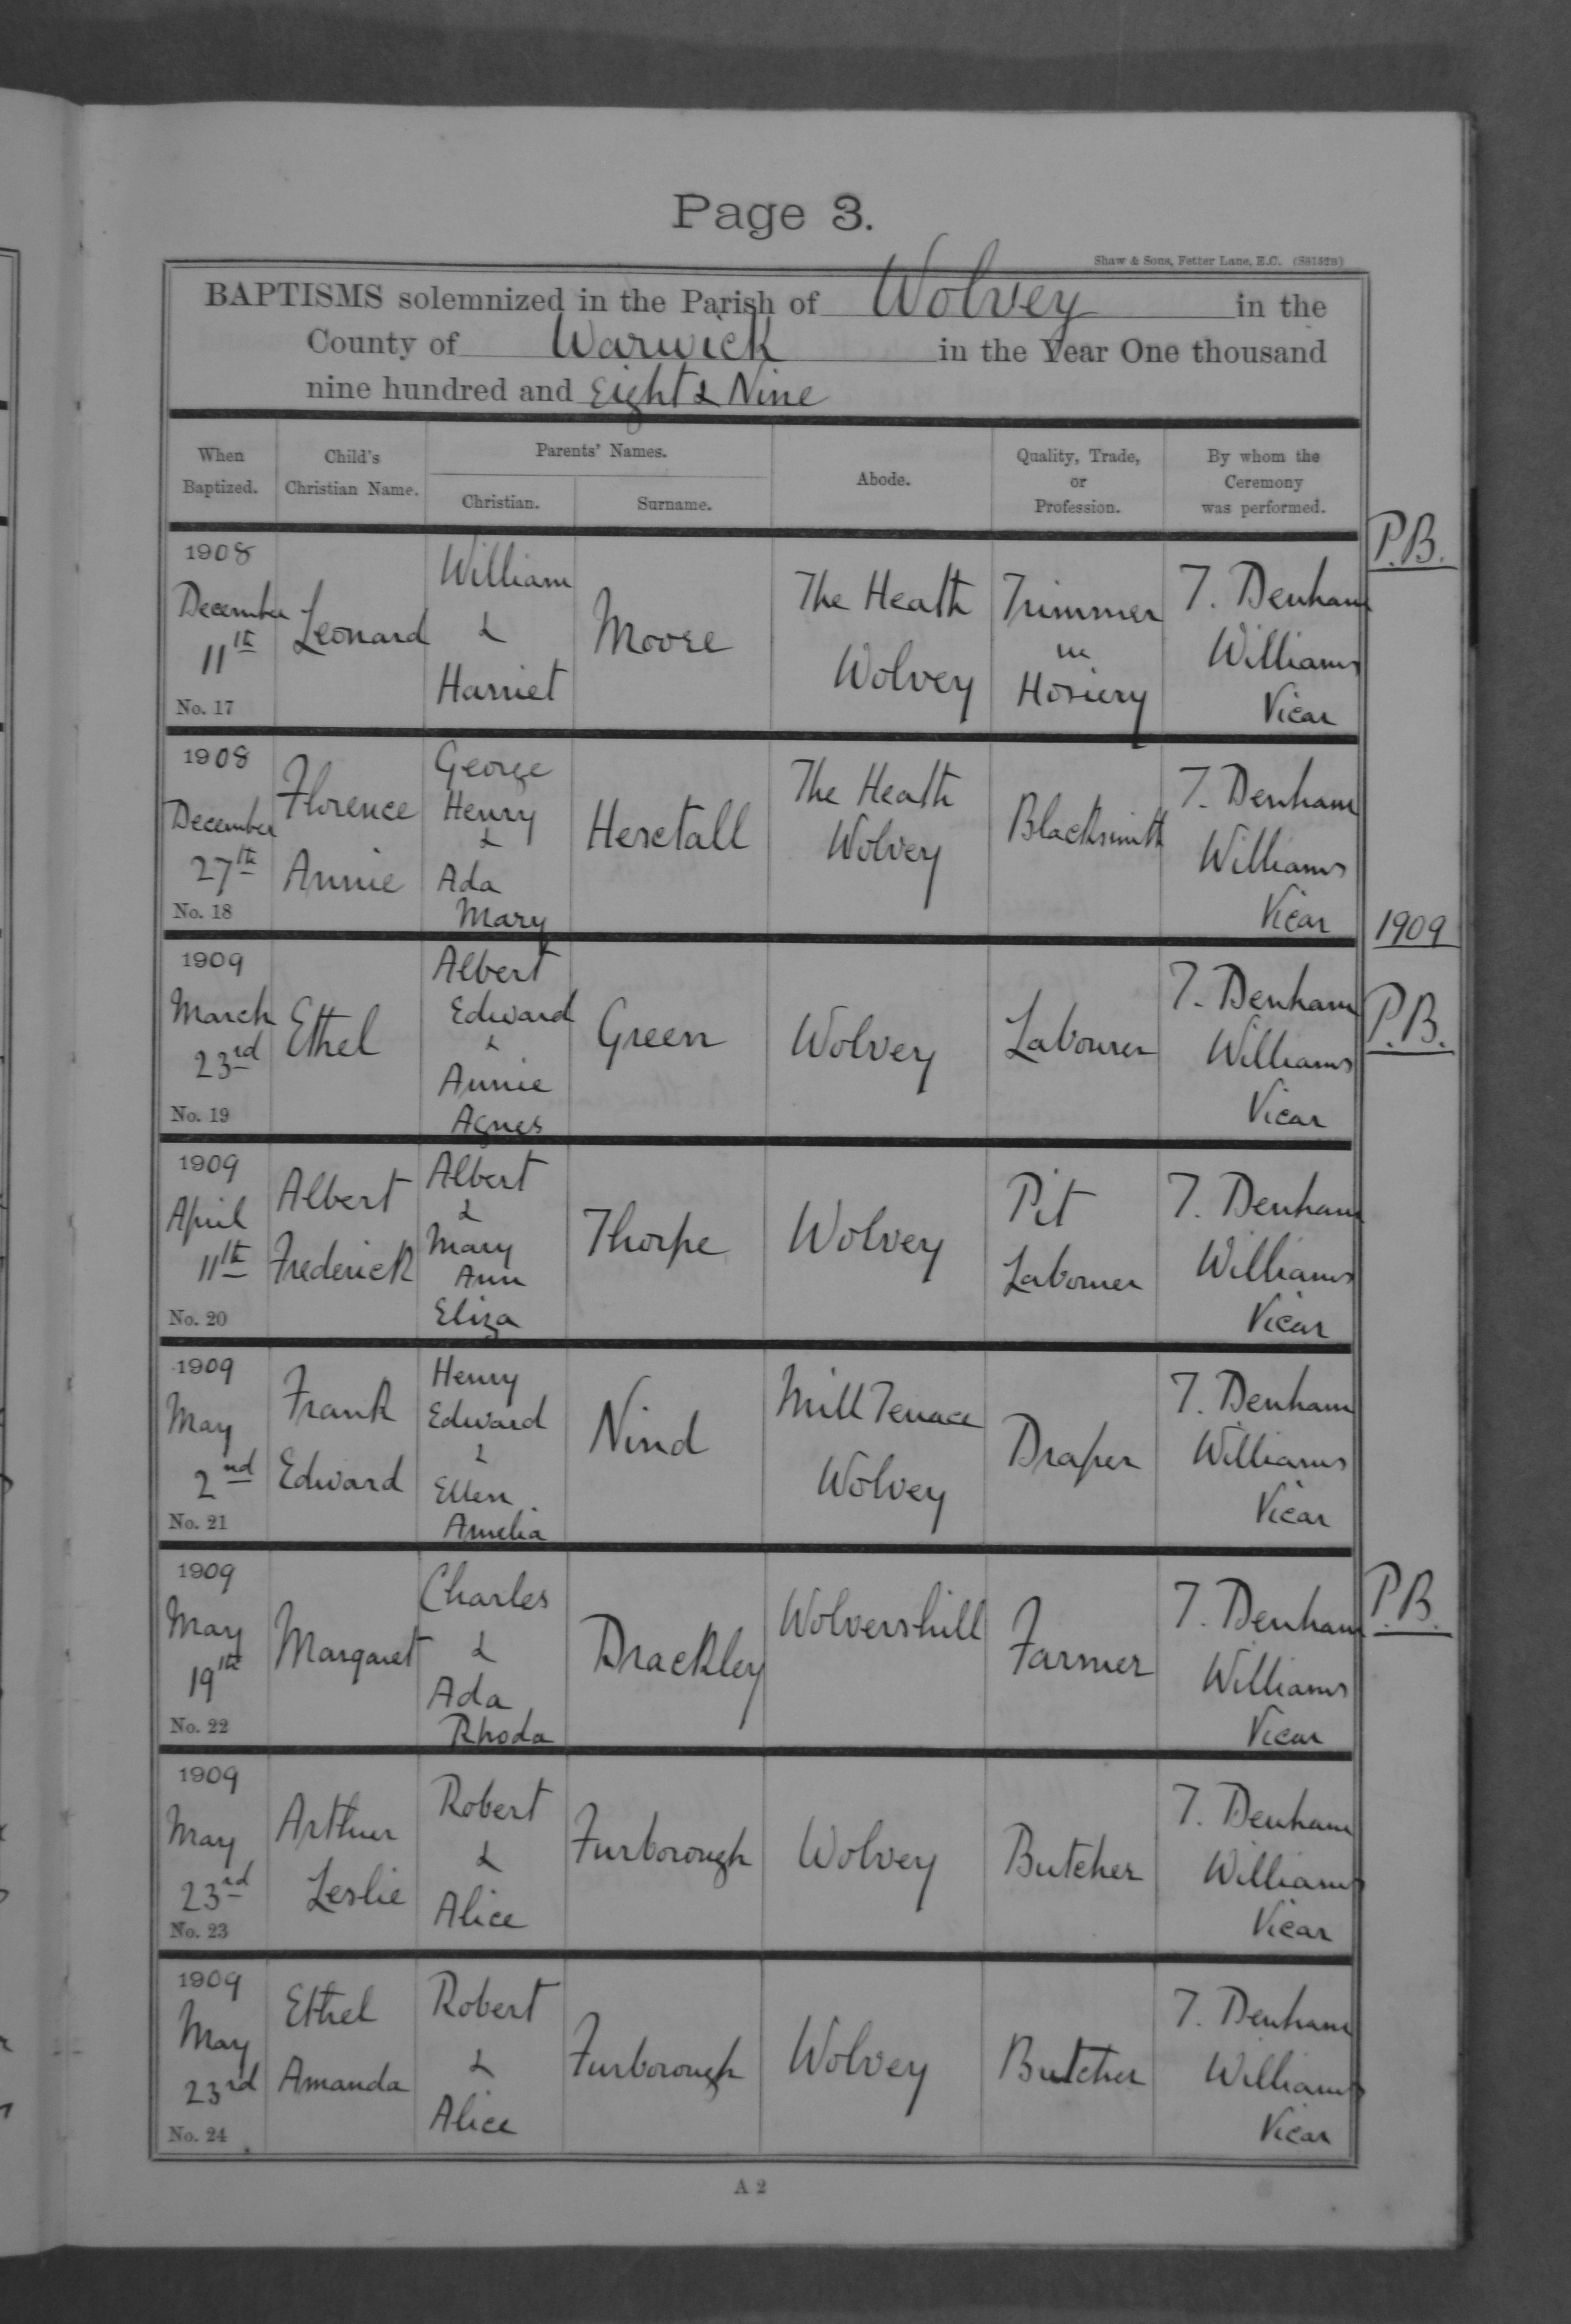 Page 3.
Shaw & Sons, Fetter Lane, E.C. (S8152B)
BAPTISMS solemnized in the Parish of Wolvey in the
County of Warwick in the Year One thousand
nine hundred and Eight & Nine
When Baptized.
Child's Christian Name.
Parents' Names.
Christian.
Surname.
Abode.
Quality, Trade, or Profession.
By whom the Ceremony was performed.
1908
December
11th
No. 17
Leonard
William
&
Harriet
Moore
The Heath
Wolvey
Trimmer
in
Hosiery
T. Denham
Williams
Vicar
P.B.
1908
December
27th
No. 18
Florence
Annie
George
Henry
&
Ada
Mary
Hesetall
The Heath
Wolvey
Blacksmith
T. Denham
Williams
Vicar
1909
1909
March
23rd
No. 19
Ethel
Albert
Edward
&
Annie
Agnes
Green
Wolvey
Labourer
T. Denham
Williams
Vicar
P.B.
1909
April
11th
No. 20
Albert
Frederick
Albert
&
Mary
Ann
Eliza
Thorpe
Wolvey
Pit
Labourer
T. Denham
Williams
Vicar
1909
May
2nd
No. 21
Frank
Edward
Henry
Edward
&
Ellen
Amelia
Nind
Mill Terrace
Wolvey
Draper
T. Denham
Williams
Vicar
1909
May
19th
No. 22
Margaret
Charles
&
Ada
Rhoda
Drackley
Wolvershill
Farmer
T. Denham
Williams
Vicar
P.B.
1909
May
23rd
No. 23
Arthur
Leslie
Robert
&
Alice
Furborough
Wolvey
Butcher
T. Denham
Williams
Vicar
1909
May
23rd
No. 24
Ethel
Amanda
Robert
&
Alice
Furborough
Wolvey
Butcher
T. Denham
Williams
Vicar
A 2